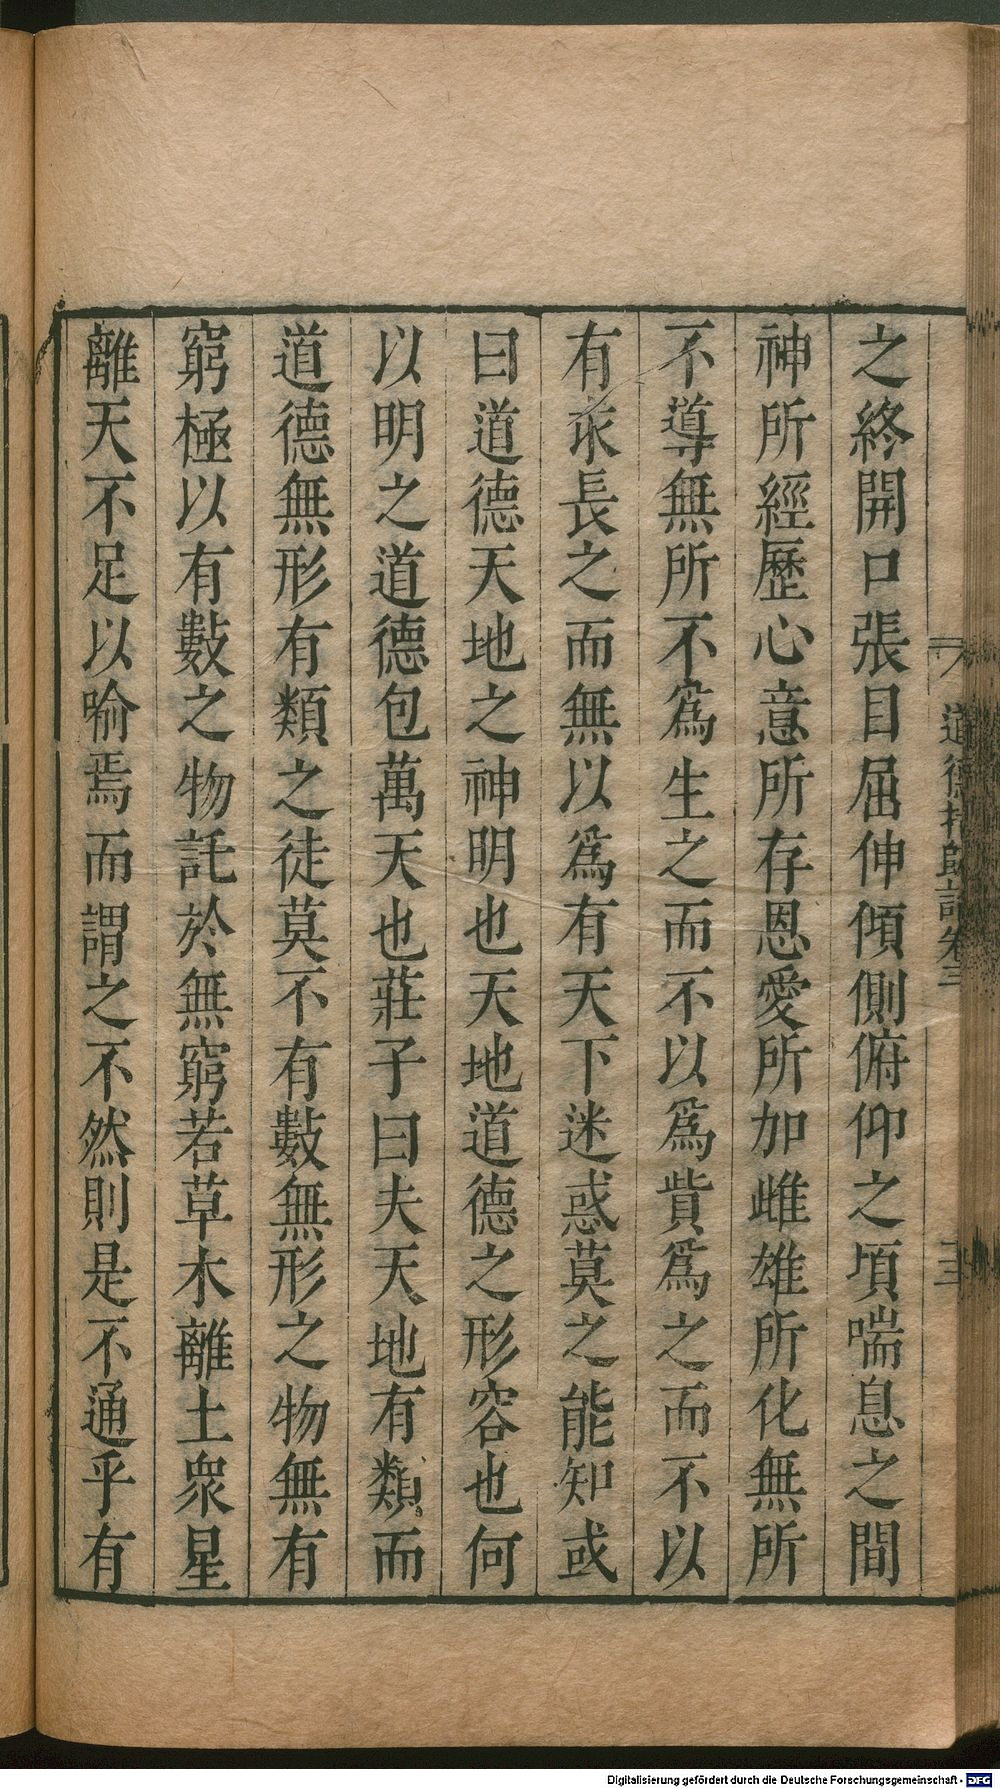 之終開口張目屈伸傾側俯仰之頃喘息之間
神所經歷心意所存恩愛所加雌雄所化無所
不導無所不為生之而不以為貲為之而不以
有求長之而無以為有天下迷惑莫之能知或
曰道德天地之神明也天地道德之形容也何
以明之道德包萬天也莊子曰夫天地有類而
道德無形有類之徒莫不有數無形之物無有
窮極以有數之物託於無窮若草木離土衆星
離天不足以喻焉而謂之不然則是不通乎有
道德指歸論卷三
Digitalisierung gefördert durch die Deutsche Forschungsgemeinschaft - DFG